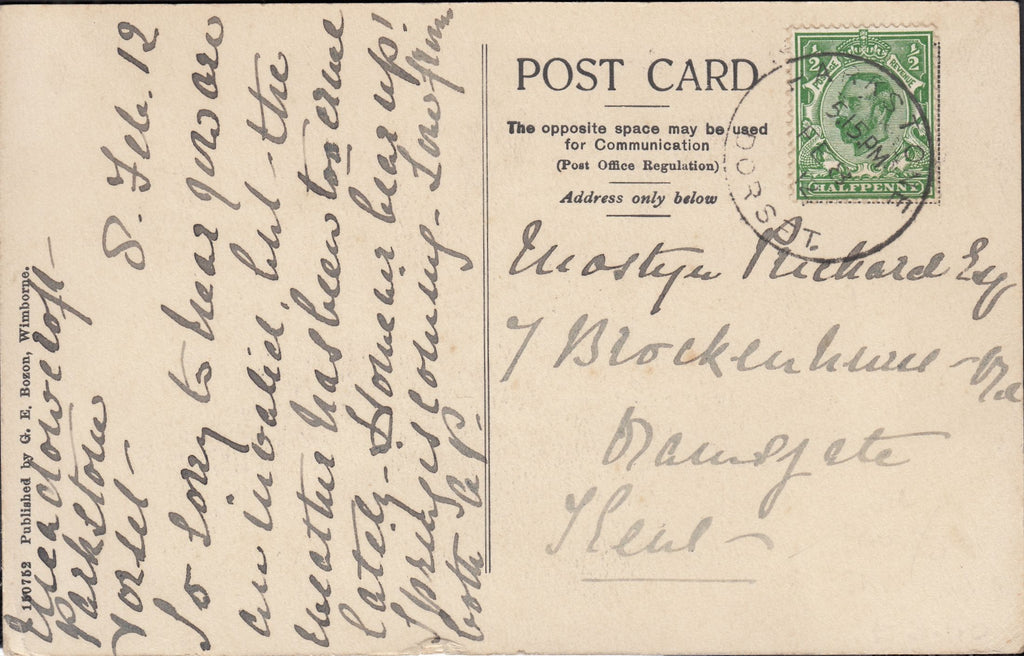 150752 Published by G. E. Bozon, Wimborne.
Meadowcroft -
Parkstone
Dorset -
8. Feb. 12
So sorry to hear you are
an invalid, but the
weather has been too crue
lately - However bear up!
Spring is coming - Love from
both
POST CARD
The opposite space may be used
for Communication
(Post Office Regulation)
Address only below
Mostyn Richard Esq
7 Brockenhurst Rd
Ramsgate
Kent -
½ ½
POSTAGE REVENUE
HALFPENNY
PARKSTONE
5.15PM
FE 8
12
DORSET.